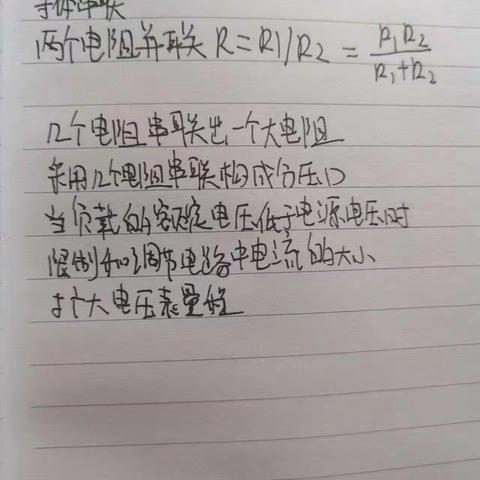 两个电阻并联 R=R1/R2 = R1R2/R1+R2
几个电阻串联出一个大电阻
采用几个电阻串联构成分压口
当负载的额定电压低于电源电压时
限制和调节电路中电流的大小
扩大电压表量程